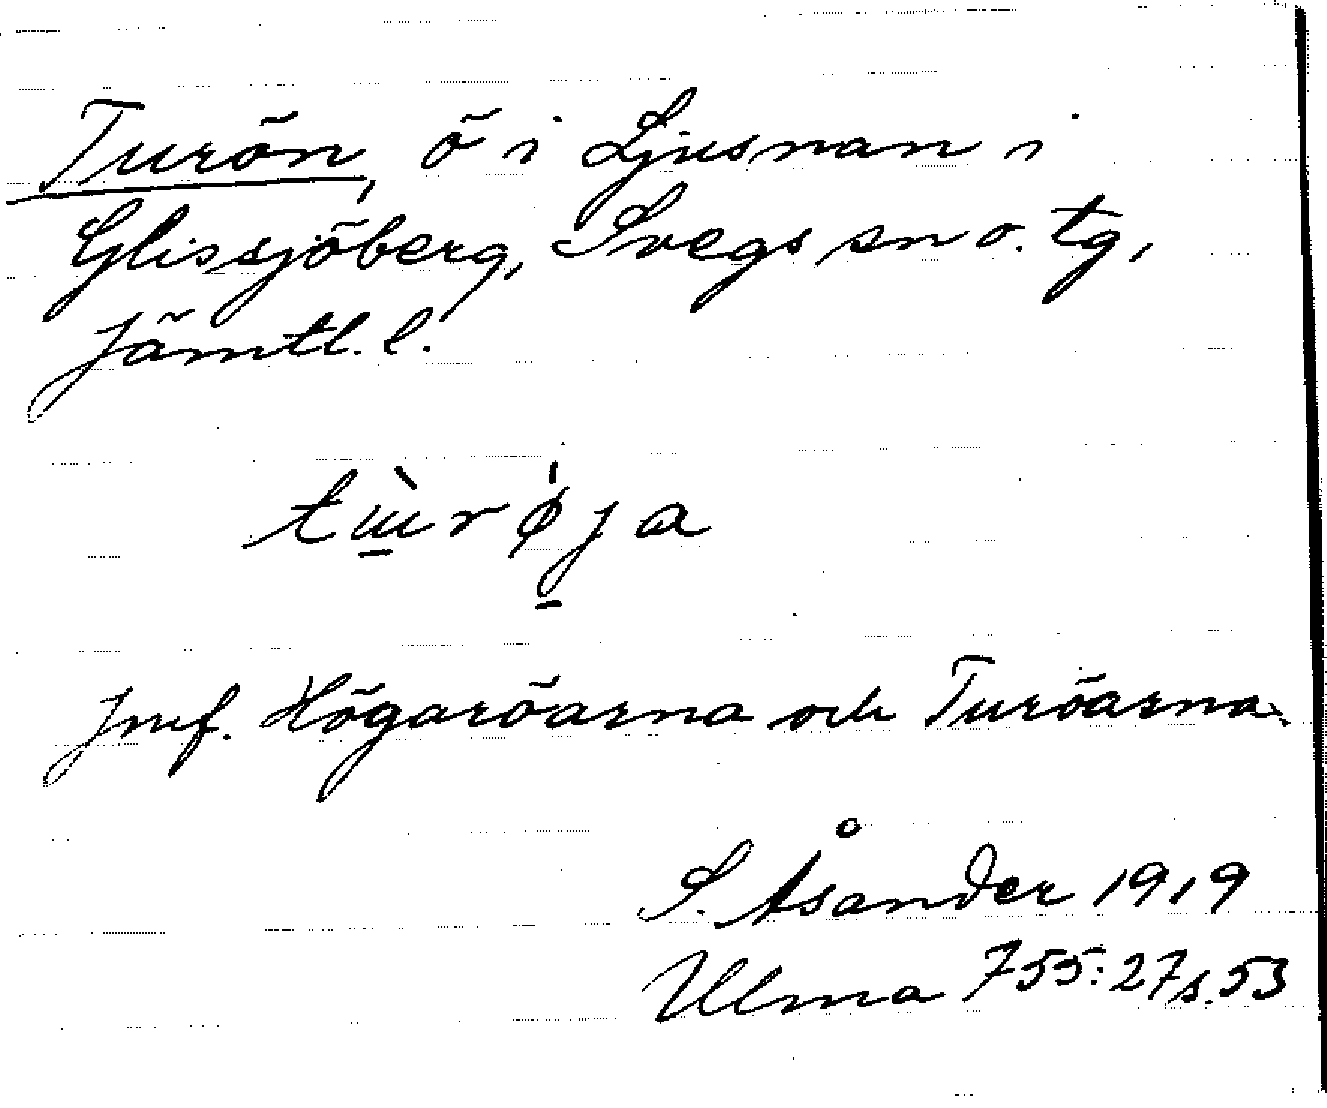 Turön, ö i Ljusnan i
Glissjöberg, Svegs sn o. tg,
Jämtl. l.
Jmf. Högaröarna och Turöarna.
S. Åsander 1919
Ulma 755:27 s. 53